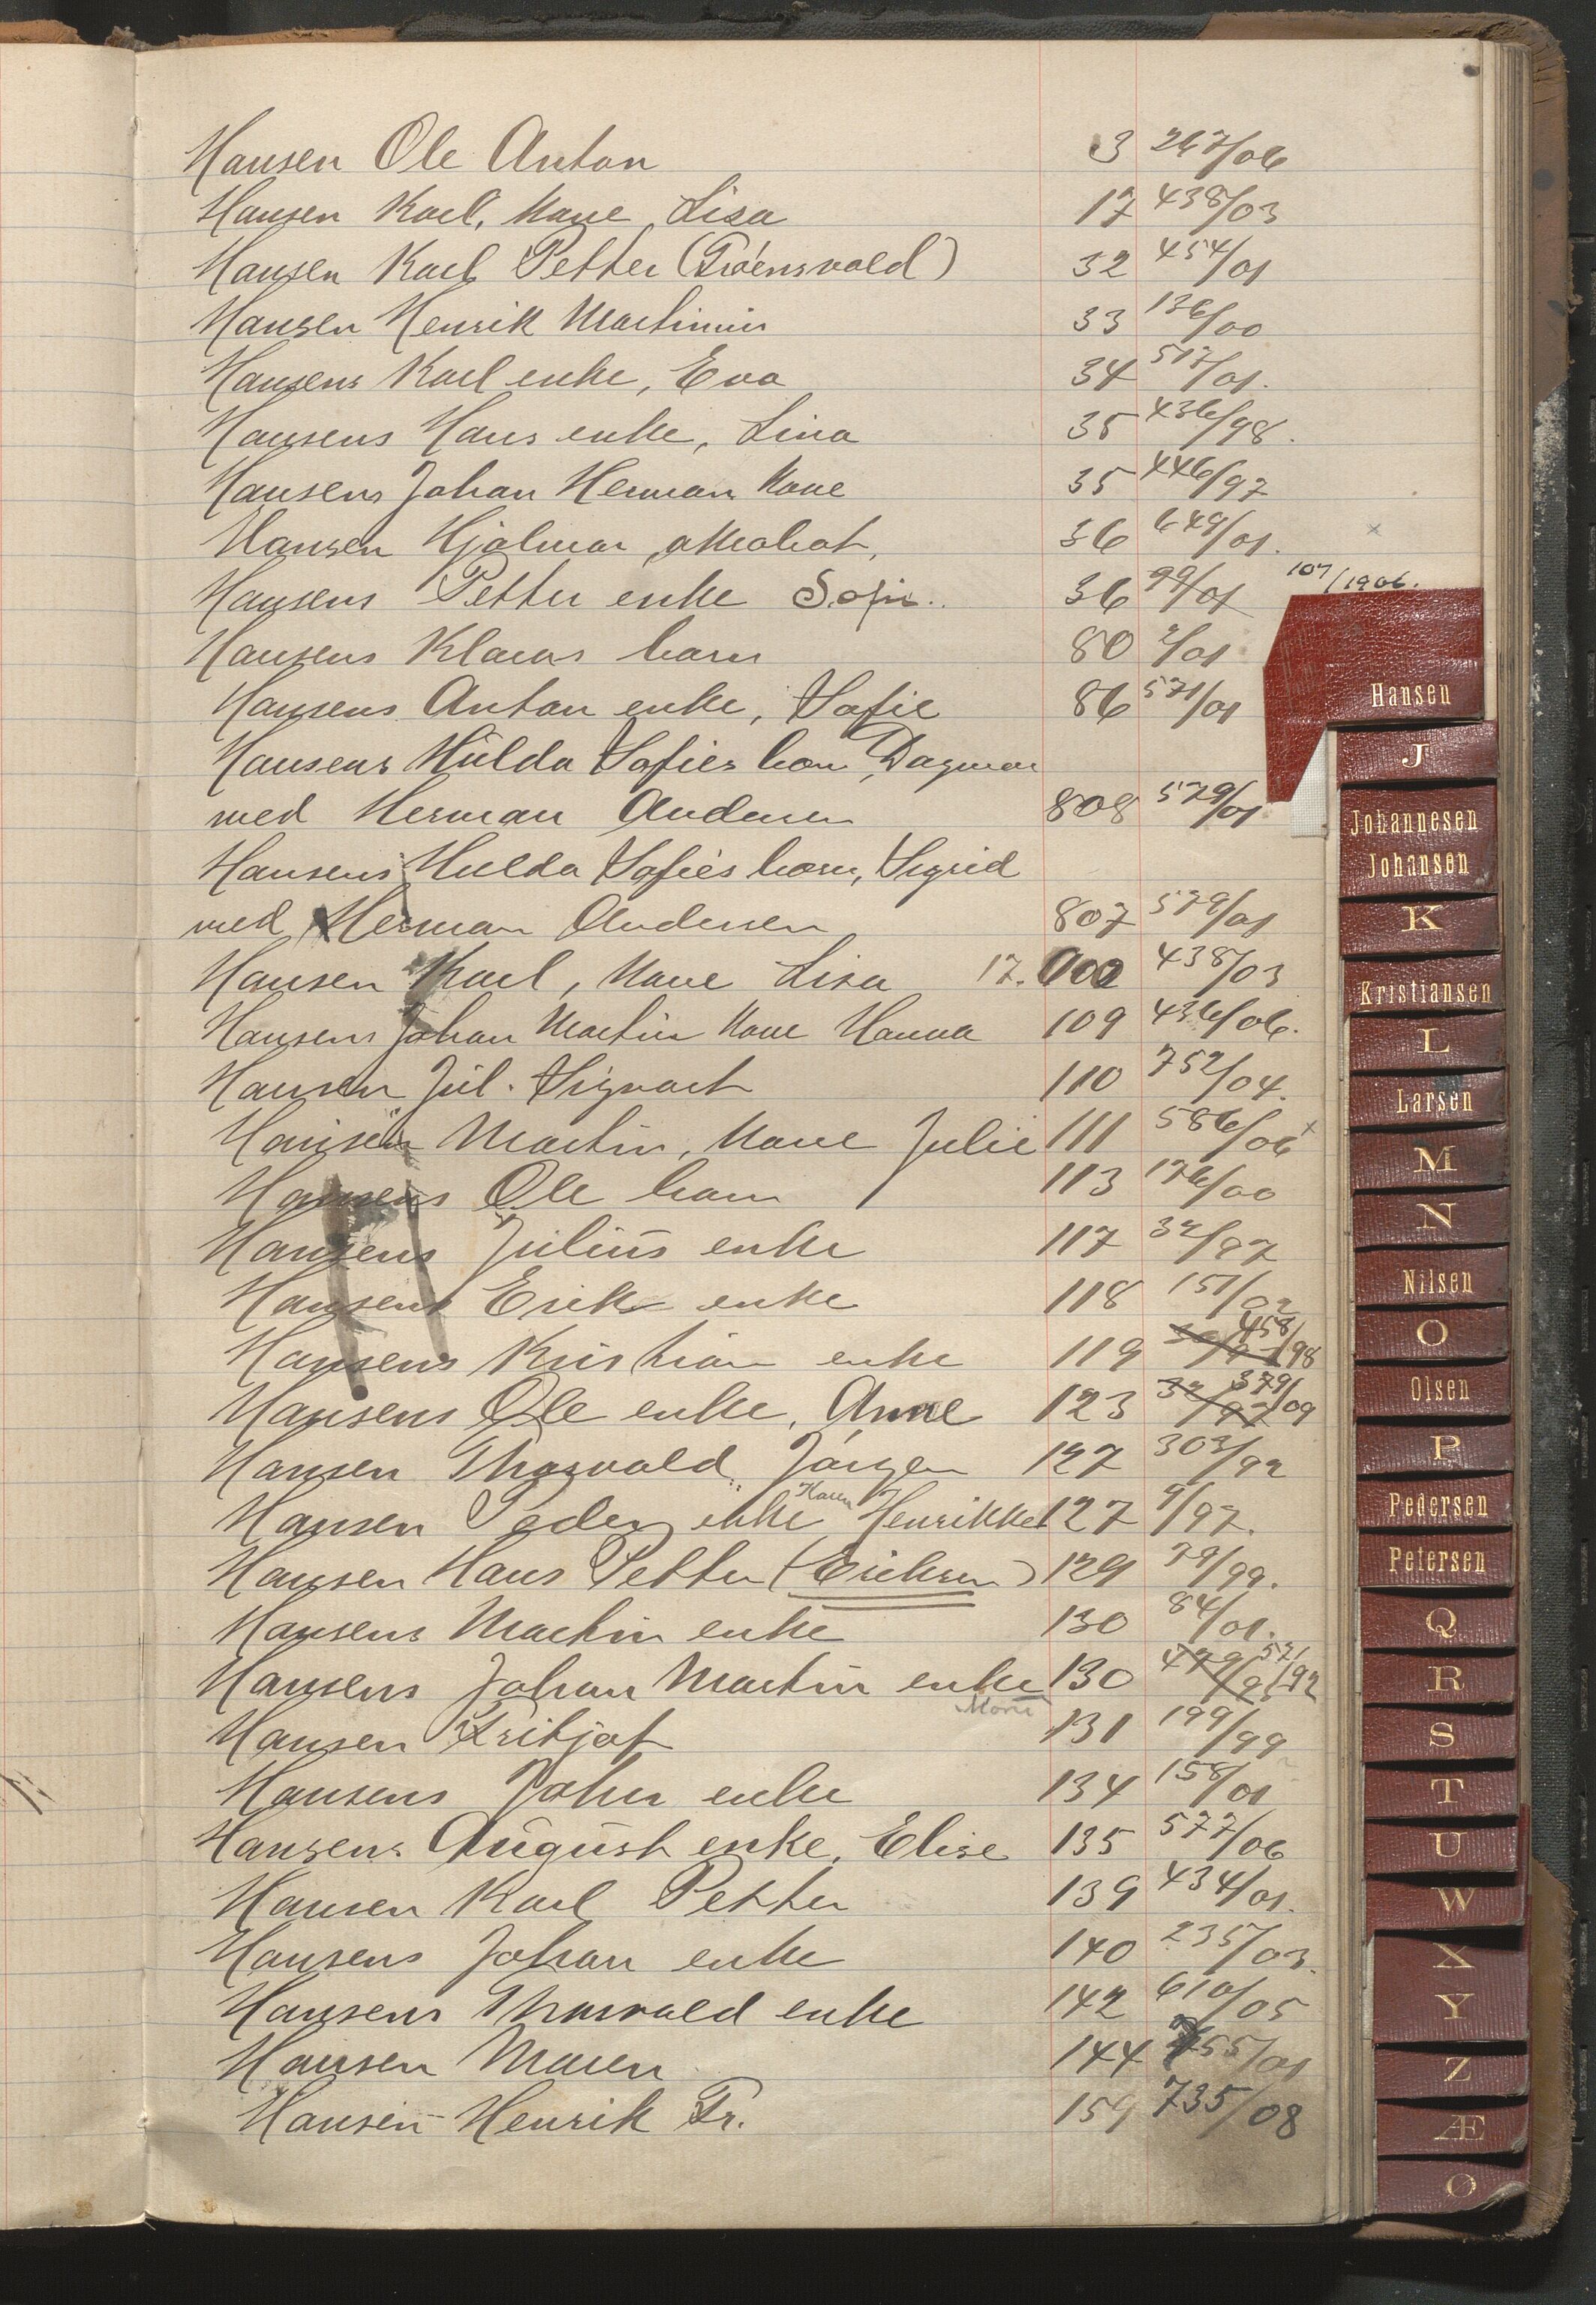 Hansen Ole Anton 3 267/06
Hansen Karl, kone Lisa 17 438/03
Hansen Karl Petter (Troensvold) 32 454/01
Hansen Henrik Martinius 33 136/00
Hansens Karl enke, Eva 34 517/01.
Hansens Hans enke, Lina 35 436/98.
Hansens Johan Herman kone 35 446/97
Hansen Hjalmar, akrobat, 36 649/01.
Hansens Petter enke Sofie.. 36 99/01 107/1906.
Hansens Klaus barn 80 2/01
Hansens Anton enke, Sofie 86 571/01
Hansens Hulda Sofies barn, Dagmar
med Herman Andersen 808 579/01
Hansens Hulda Sofies barn, Sigrid
med Herman Andersen 807 579/01
Hansen Karl, kone Lisa 17. 438/03
Hansens Johan Martin kone Hanna 109 436/06.
Hansen Jul. Sigvart 110 752/04.
Hansen Martin, kone Julie 111 586/06 x
Hansens Ole barn 113 176/00
Hansens Julius enke 117 32/97
Hansens Erik enke 118 151/02
Hansens Kristian enke 119 458/98
Hansens Ole enke, Anne 123 32/97 379/09
Hansen Thorvald Jørgen 127 303/92
Hansen Peder enke Karen Henrikke 127 9/97.
Hansen Hans Petter (Eriksen) 129 79/99.
Hansens Martin enke 130 84/01.
Hansens Johan Martin enke 130 479/95 521/92
Marie
Hansen Fritjof 131 199/99
Hansens John enke 134 158/01
Hansens August enke, Elise 135 577/06
Hansen Karl Petter 139 434/01.
Hansens Johan enke 140 235/03.
Hansens Thorvald enke 142 610/05
Hansen Maren 144 755/01
Hansen Henrik Fr. 159 735/08
Hansen
J
Johannesen
Johansen
K
Kristiansen
L
Larsen
M
N
Nilsen
O
Olsen
P
Pedersen
Petersen
Q
R
S
T
U
W
X
Y
Z
Æ
Ø